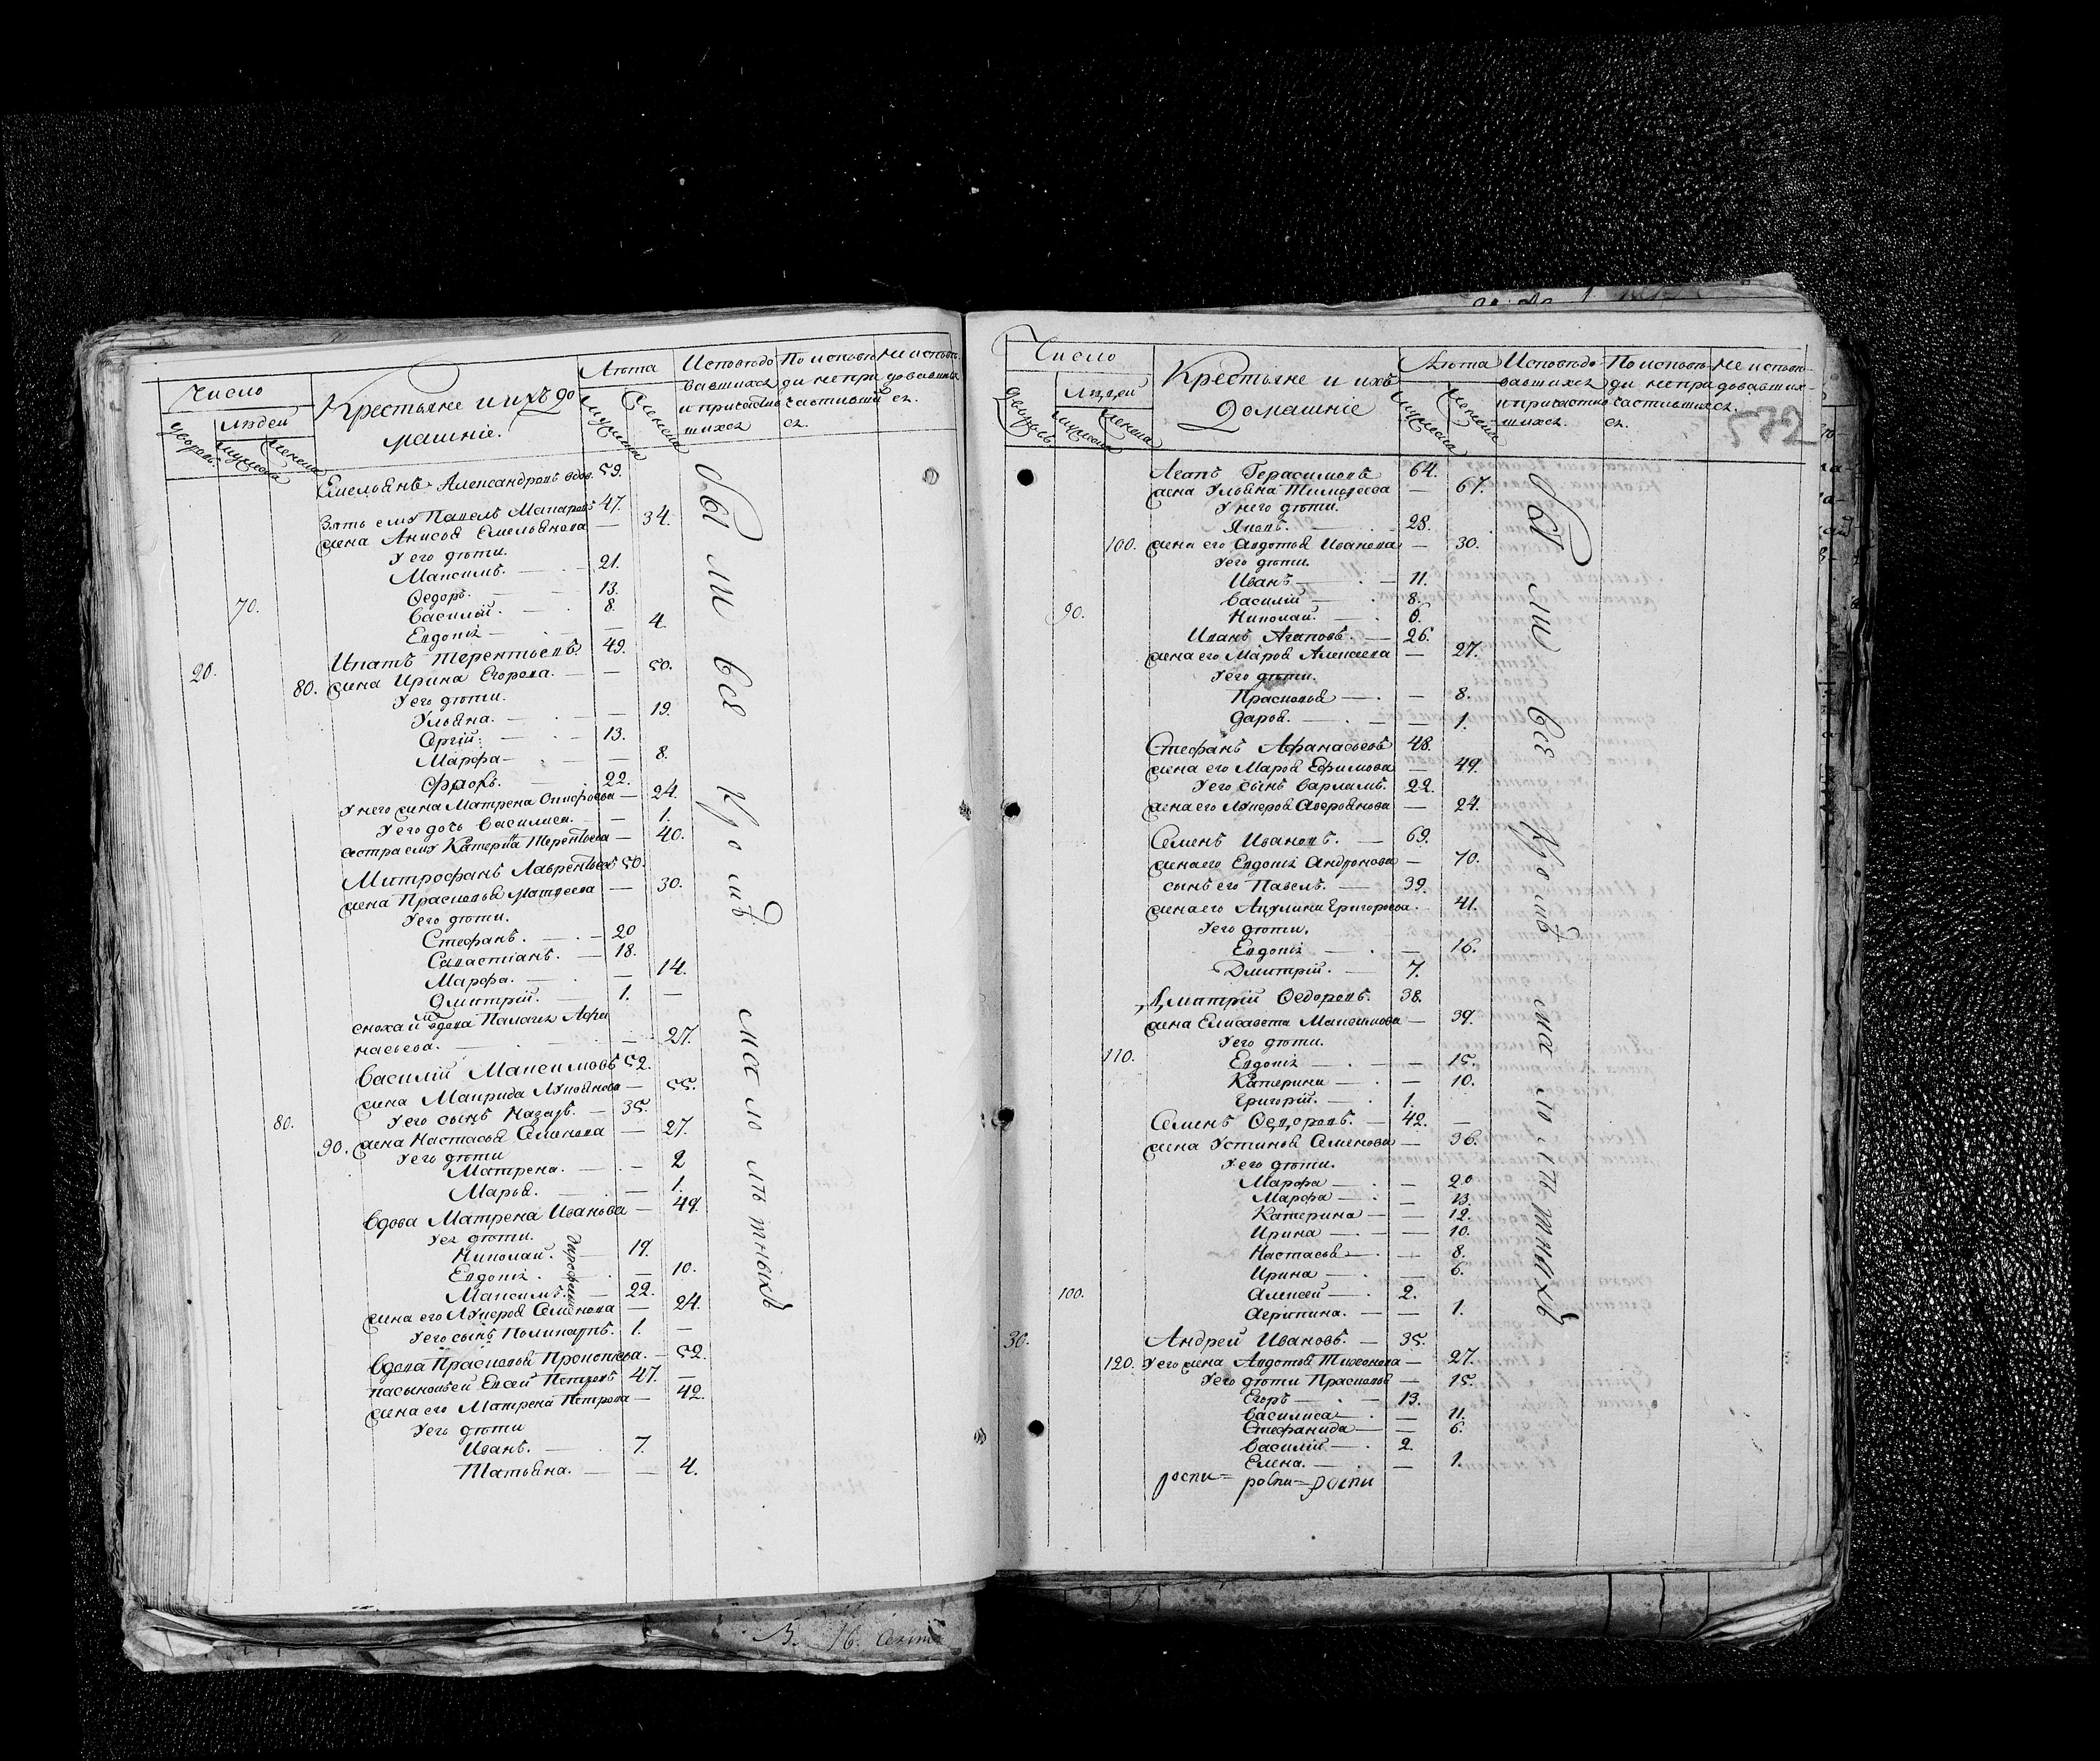 Число
Людей
Дворовъ
Мужеска
Женска
Крестьяне и ихъ до
машніе.
Лѣта
Мужеска
Женска
Исповѣдо
вавшихся
и причасти
шихся
По исповѣ
ди непри
частивший
ся.
Не исповѣ
довавших
ся.
Емельянъ Александровъ вдов. 59.
Зять ему Павелъ Макаровъ 47.
жена Анисья Емельянова — 34.
У его дѣти.
Максимъ. — 21.
Ѳедоръ. — 13.
70. Василій. — 8.
Евдокія — — 4.
20. Ипатъ Терентьевъ. 49.
80. жена Ирина Егорова. — — 50.
У его дѣти.
Ульяна. — — 19.
Сергій: — 13.
Марфа — — 8.
Фролъ. 22.
У него жена Матрена — 24.
У его дочь Василиса. — 1.
сестра ему Катерина Терентьева — 40.
Митрофанъ Лаврентьевъ 50.
жена Прасковья Матвеева — 30.
У его дѣти.
Стефанъ. — 20
Савастіанъ. — 18.
Марфа. — — 14.
Дмитрій. 1. —
сноха й вдова Палагия Афа
насьева. — — 27.
Василій Максимовъ 52.
жена Маврида Лукоянова — 55.
У его сынъ Назаръ. — 35.
80.
90. жена Настасья Семенова — 27.
У его дѣти
Матрена. — — 2
Марья. — 1.
Вдова Матрена Иванова — 49.
У ея дѣти.
Николай. — 19.
Евдокия. — 10.
Максимъ. — 22.
жена его Лукерья Семенова — 24.
У его сынъ Поликарпъ. 1. —
Вдова Прасковья Прокопиева. — 52.
пасынокъ ей Евсей Петровъ 47. —
жена его Матрена Петрова — 42.
У его дѣти
Иванъ. — 7.
Татьяна. — — 4.
Были всѣ кромѣ малолѣтныхъ
Число
Людей
Дворовъ
Мужеска
Женска
Крестьяне и ихъ
домашніе
Лѣта
Мужеска
Женска
Исповѣдо
вавшихся
и причасти
шихся.
По исповѣ
ди непри
частившихся
ся.
Не исповѣ
довавших
ся.
532
Агапъ Герасимовъ 64.
жена Ульяна Тимофеева — 67.
У него дѣти.
Яковъ. — 28.
100. жена его Авдотья Иванова — 30.
У его дѣти.
Иванъ — 11.
Василій — 8.
90. Николай. — 6.
Иванъ Агаповъ. — 26.
жена его Марья Алексеева — 27.
У его дѣти.
Прасковья — — 8.
Дарья. — — 1.
Стефанъ Афанасьевъ 48.
жена его Марья Ефимова — 49.
У его сынъ Варламъ. 22.
жена его Лукерья Аверьянова — 24.
Семенъ Ивановъ. — 69.
жена его Евдокия Андронова — 70.
сынъ его Павелъ. — 39.
жена его Акулина Григорьева. 41.
У его дѣти.
Евдокия — — 16.
Дмитрій. — 7.
Дматрій Ѳедоровъ. 38.
жена Елисавета Максимова — 39.
У его дѣти.
110. Евдокия — — 15.
Катерина — — 10.
Григорій. — 1.
Семенъ Ѳедоровъ. — 42. —
жена Устинья Семенова — 36.
У его дѣти.
Марфа — — 20
Марфа — — 13.
Катерина — — 12.
Ирина — — 10.
Настасья — — 8.
Ирина — — 6.
100. Алексей — 2.
Агрипина. — — 1.
30. Андрей Ивановъ. — 35.
120. У его жена Авдотья Тихонова — 27.
У его дѣти Прасковья — 15.
Егоръ — — 13.
Василиса — — 11.
Стефанида — — 6.
Василій — 2.
Елена. — — 1.
роспи= роспи= роспи
Были всѣ кромѣ малолѣтныхъ